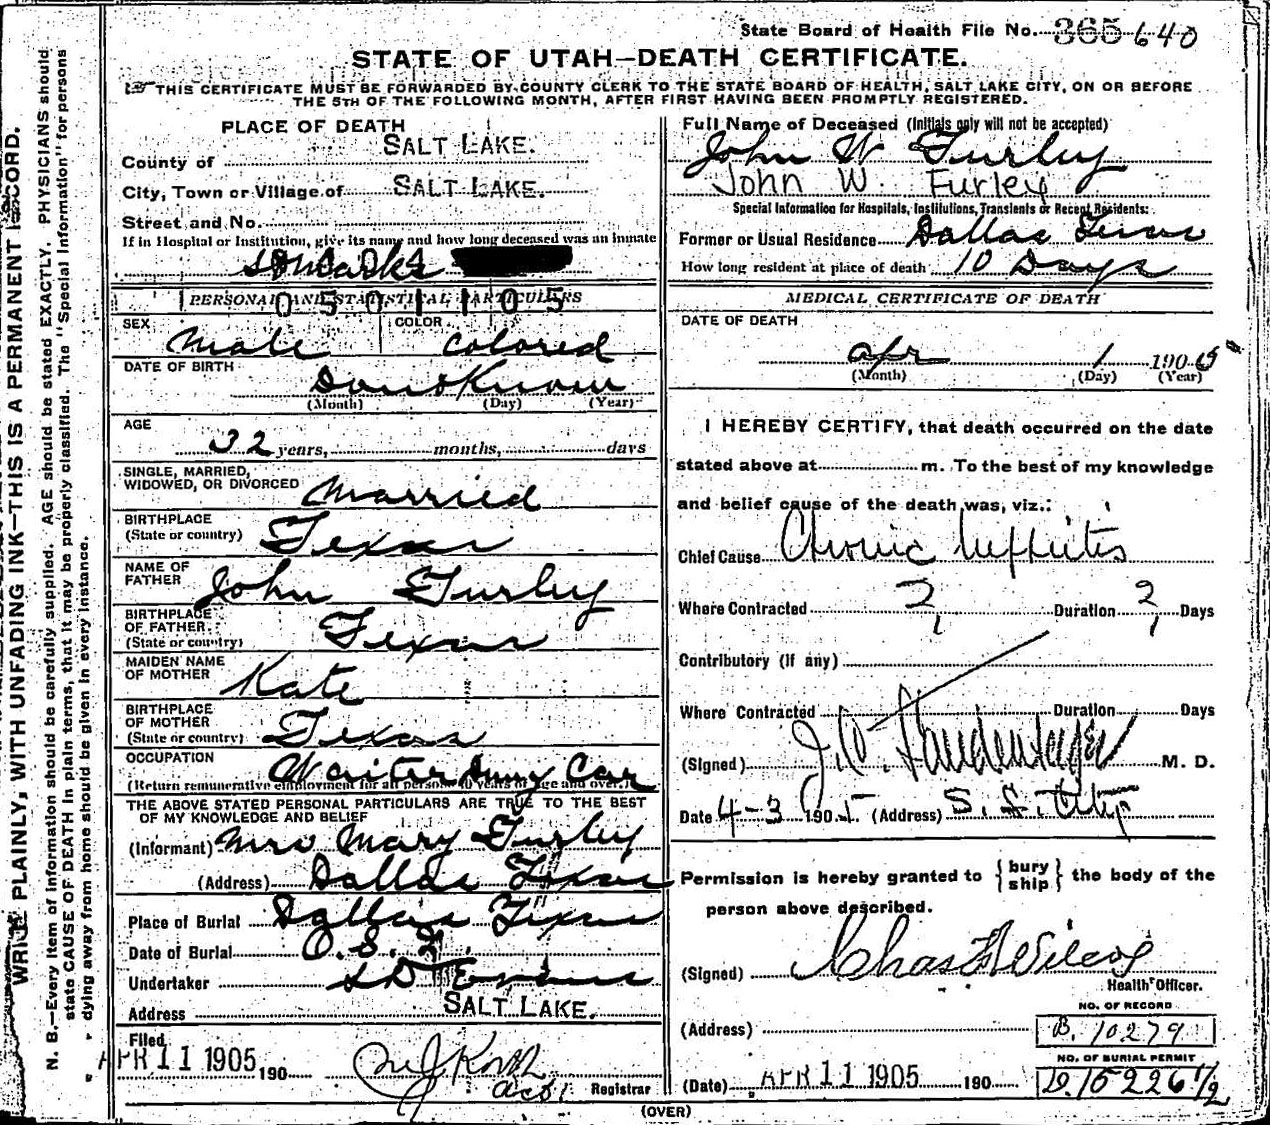 State Board of Health File No. 365 640
STATE OF UTAH—DEATH CERTIFICATE.
THIS CERTIFICATE MUST BE FORWARDED BY COUNTY CLERK TO THE STATE BOARD OF HEALTH, SALT LAKE CITY, ON OR BEFORE
THE 5TH OF THE FOLLOWING MONTH, AFTER FIRST HAVING BEEN PROMPTLY REGISTERED.
WRITE PLAINLY, WITH UNFADING INK—THIS IS A PERMANENT RECORD.
N. B.—Every item of information should be carefully supplied. AGE should be stated EXACTLY. PHYSICIANS should
state CAUSE OF DEATH in plain terms, that it may be properly classified. The "Special Information" for persons
dying away from home should be given in every instance.
PLACE OF DEATH
County of SALT LAKE.
City, Town or Village of SALT LAKE.
Street and No.
If in Hospital or Institution, give its name and how long deceased was an inmate
St Marks
PERSONAL AND STATISTICAL PARTICULARS
1 0 5 0 1 1 0 5
SEX Male COLOR Colored
DATE OF BIRTH Dont Know
(Month) (Day) (Year)
AGE 32 years, months, days
SINGLE, MARRIED,
WIDOWED, OR DIVORCED Married
BIRTHPLACE
(State or country) Texas
NAME OF
FATHER John Furley
BIRTHPLACE
OF FATHER.
(State or country) Texas
MAIDEN NAME
OF MOTHER Kate
BIRTHPLACE
OF MOTHER
(State or country) Texas
OCCUPATION Waiter Car
(Return remunerative employment for all persons 10 years of age and over.)
THE ABOVE STATED PERSONAL PARTICULARS ARE TRUE TO THE BEST
OF MY KNOWLEDGE AND BELIEF
(Informant) Mrs Mary Furley
(Address) Dallas Texas
Place of Burial Dallas Texas
Date of Burial O. S.
Undertaker S D Evans
Address SALT LAKE.
Filed
APR 11 1905 190
Registrar
Full Name of Deceased (Initials only will not be accepted)
John W Furley
John W. Furley
Special Information for Hospitals, Institutions, Transients or Recent Residents:
Former or Usual Residence Dallas Texas
How long resident at place of death 10 Days
MEDICAL CERTIFICATE OF DEATH
DATE OF DEATH
Apr 1 1905
(Month) (Day) (Year)
I HEREBY CERTIFY, that death occurred on the date
stated above at m. To the best of my knowledge
and belief cause of the death was, viz.:
Chief Cause Chronic Nephritis
Where Contracted ? Duration ? Days
Contributory (If any)
Where Contracted Duration Days
(Signed) M. D.
Date 4-3 1905 (Address)
Permission is hereby granted to {bury ship} the body of the
person above described.
(Signed) Chas F Wilcox
Health Officer.
NO. OF RECORD
(Address) B. 10279
NO. OF BURIAL PERMIT
(Date) APR 11 1905 190 D. 15226 1/2
(OVER)